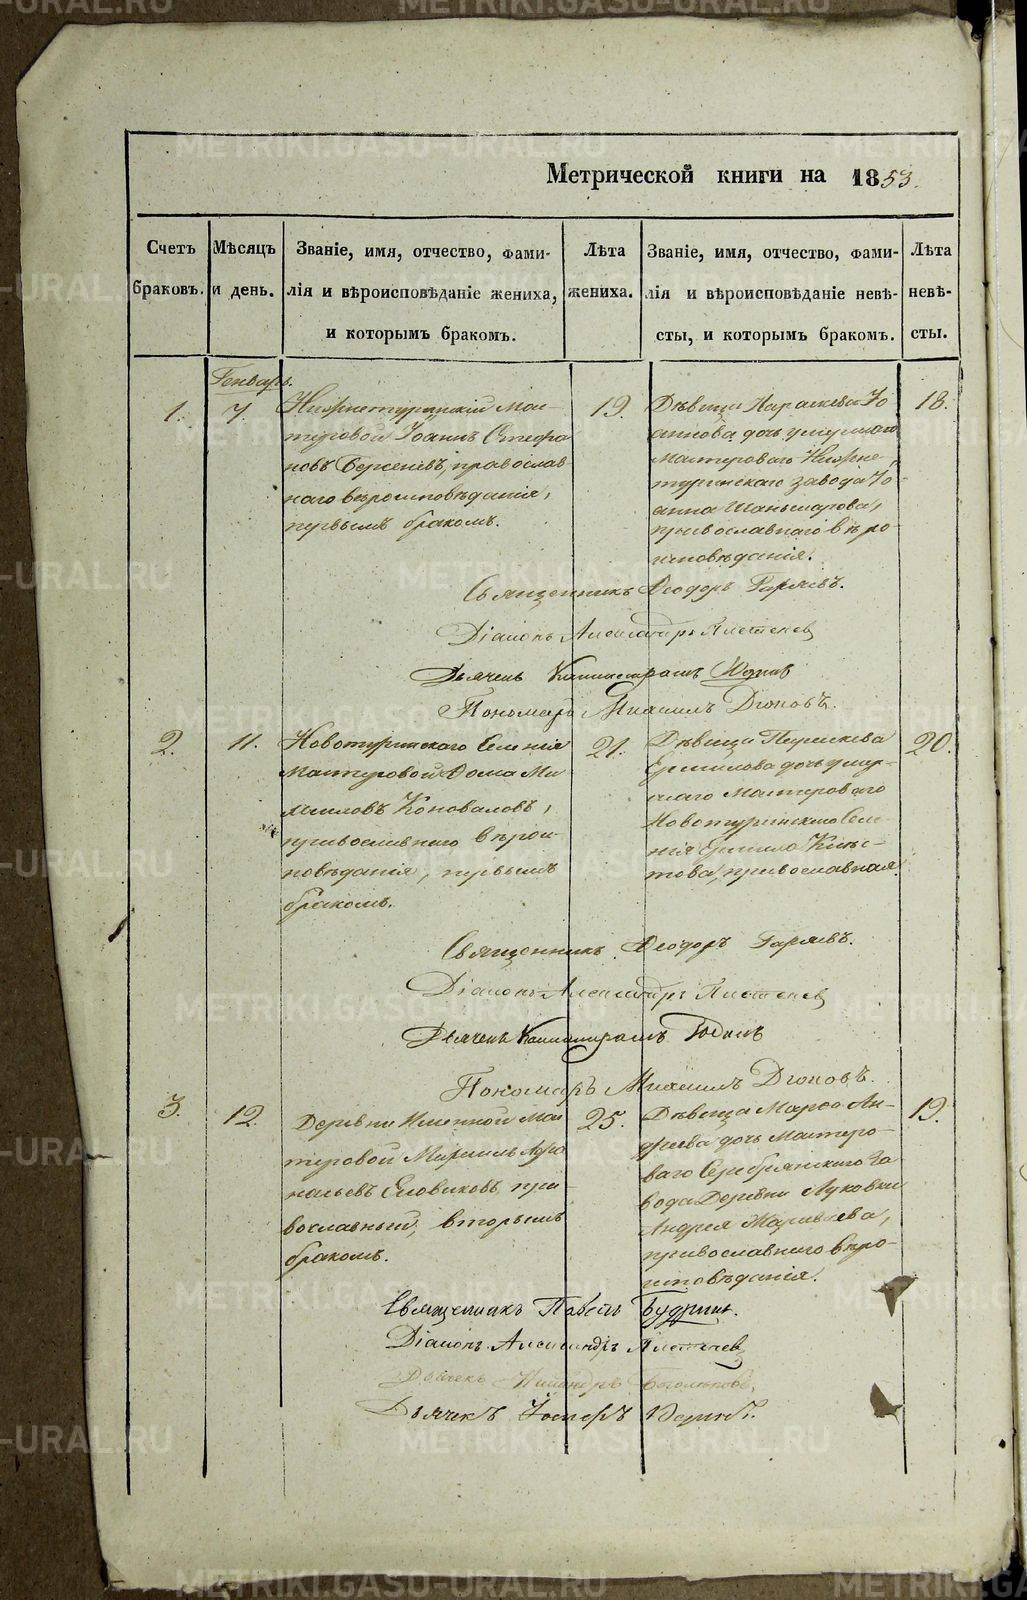 Метрической книги на 1853.
Счетъ браковъ.
Мѣсяцъ и день.
Званіе, имя, отчество, фами-
лія и вѣроисповѣданіе жениха,
и которымъ бракомъ.
Лѣта жениха.
Званіе, имя, отчество, фами-
лія и вѣроисповѣданіе невѣ-
сты, и которымъ бракомъ.
Лѣта невѣ-
сты.
Генварь.
1.
7.
Нижнетуринскій Мас-
теровой Іоаннъ Стефа
новъ Берсеневъ, православ
наго вѣроисповѣданія,
первымъ бракомъ.
19.
Дѣвица Параскева Іо
аннова дочь умершаго
мастероваго Нижне
туринскаго завода Іо-
анна
православнаго вѣро
исповѣданія.
18.
Священникъ Ѳеодоръ Гаряевъ.
Діаконъ Александръ
Дьячекъ Капитонъ Юдинъ
Пономарь Михаилъ Дюковъ.
2.
11.
Новотуринскаго Селенія
Мастеровой Ѳома Ми
хаиловъ Коноваловъ,
православнаго вѣроис-
повѣданія, первымъ
бракомъ.
21.
Дѣвица Параскева
Ермилова дочь умер-
шаго Мастероваго
Новотуринскаго Селе
нія Ермила
това, православная.
20.
Священникъ Ѳеодоръ Гаряевъ.
Діаконъ Александръ
Дьячекъ
Пономарь Михаилъ Дюковъ.
3.
12.
Деревни Мас
теровой Михаилъ
Новиковъ, пра
вославный, вторымъ
бракомъ.
25.
Дѣвица Марѳа Ан-
дреева дочь мастеро-
ваго Серебрянскаго За
вода Деревни Луковки
Андрея
православнаго вѣро-
исповѣданія.
19.
Священникъ Павелъ Будринъ.
Діаконъ Александръ
Дьячекъ
Дьячекъ
METRIKI.GASO-URAL.RU